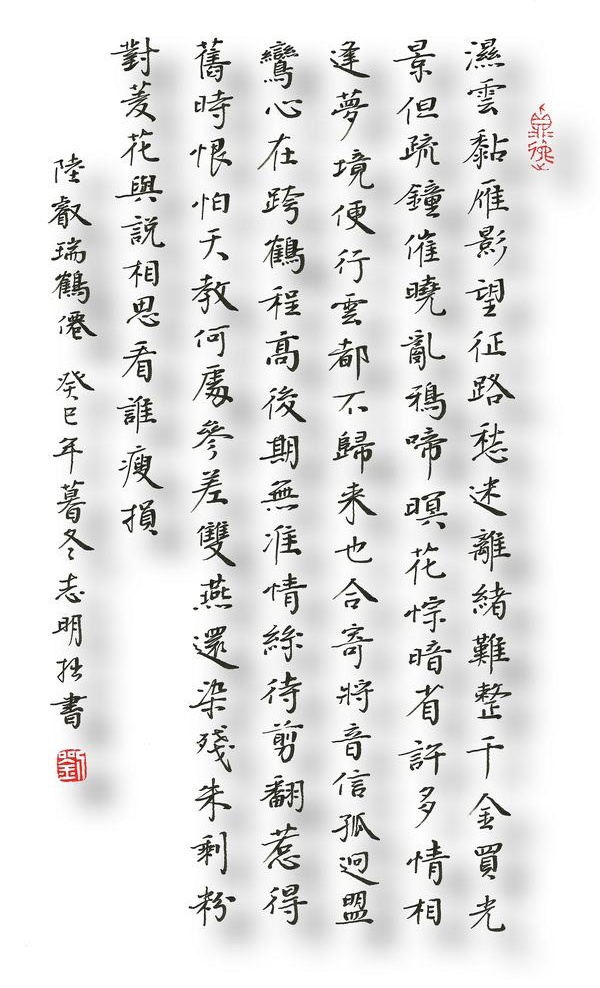 濕雲黏雁影望征路愁迷離緒難整千金買光
景但疏鐘催曉亂鴉啼暝花悰暗省許多情相
逢夢境便行雲都不歸来也合寄將音信孤迥盟
鸞心在跨鶴程高後期無准情絲待剪翻惹得
舊時恨怕天教何處參差雙燕還染殘朱剩粉
對菱花與説相思看誰瘦損
陸叡瑞鶴僊 癸巳年暮冬志明拙書
劉